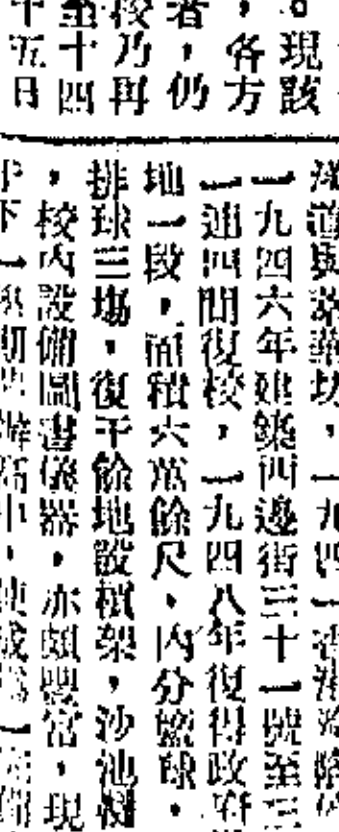 。現該
，各方
者，仍
校乃再
至十四
十五日
道與
坊，一九四一香港淪陷
一九四六年建築西邊街三十一號至三
一連四間復校，一九四八年復得政府
地一段，面積六萬餘尺，內分籃球，
排球三場，復于餘地設槓架，沙池
，校內設備圖書儀器，亦頗豐富，現
下一學期